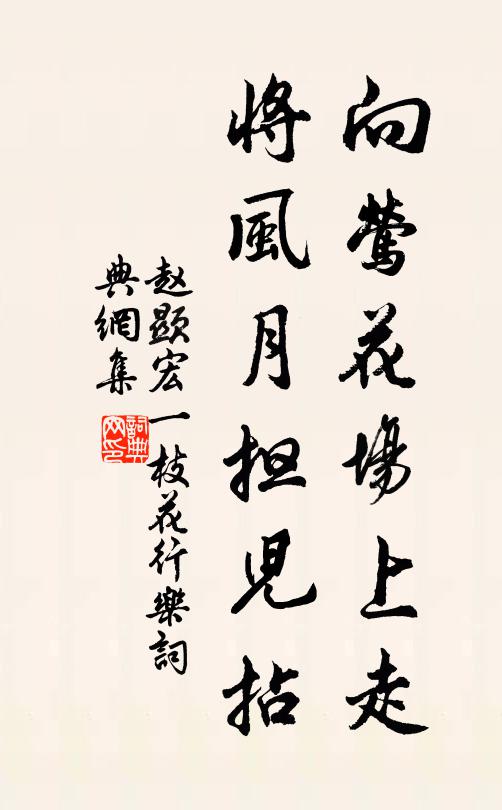 向鶯花場上走
將風月担児拈
赵顯宏一枝花行樂詞
典網集
詞典网印